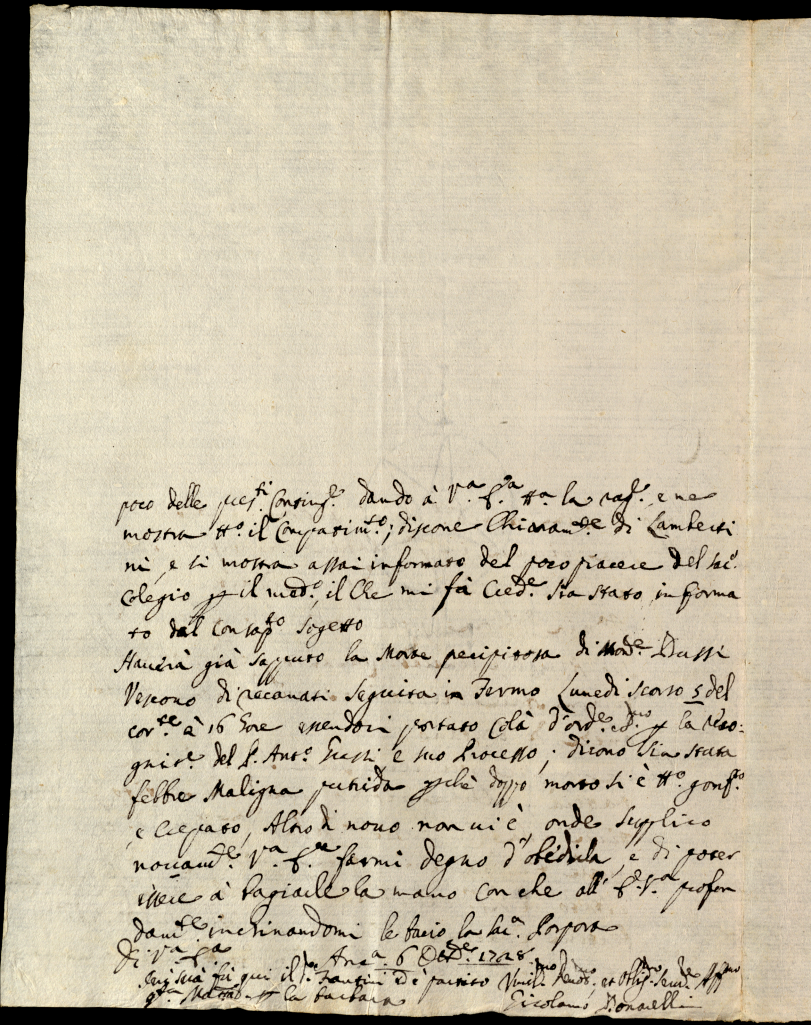 poco delle pres.ti Conting.e dando à V.a E.a tt.a la rag.e, e ne
mostra tt.o il Compatim.to; discorre Chiaram.te di Lamberti
ni, e si mostra assai informato del poco piacere del Sac.o
Colegio p il med.o, il Che mi fà Cred.e sia stato informa
to dal consap.to sogetto
Haverà già sapputo la Morte precipitosa di Mons.e Bussi
Vescovo di recanati seguita in Fermo Lunedi scorso 5 del
cor.te à 16 hore essendosi portato colà d'ord.e p la
del P. Ant.o e suo Processo; dicono sia stata
febbre Maligna putrida pchè doppo morto si è tt.o gonf.to
e Crepato, Altro di novo non vi è, onde supplico
novam.te V.a E.a farmi degno d'obedirla, e di poter
à bagiarle la mano con che all' E. V.a profon
dam.te inchinandomi le bacio la Sac.a Porpora
Di V.a E.a
Anc.a 6 1728
qui il Fantini ed è partito Umil.mo et Obblig.mo Ser.e Aff.mo
p la barbara Girolamo Bonarelli